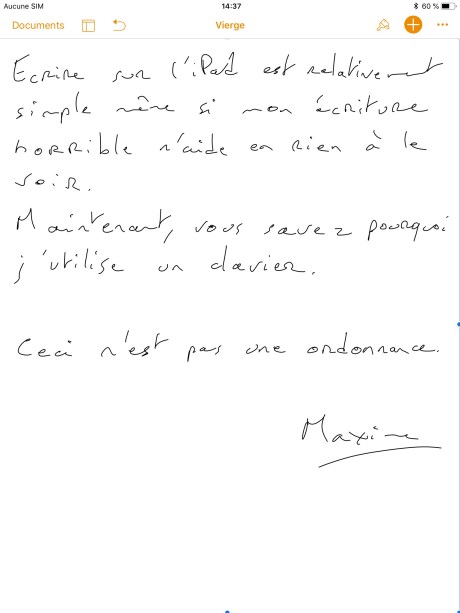 Aucune SIM 14:37 60 %
Documents Vierge
Ecrire sur l'iPad est relativement
simple même si mon écriture
horrible n'aide en rien à le
voir.
Maintenant, vous savez pourquoi
j'utilise un clavier.
Ceci n'est pas une ordonnance.
Maxime